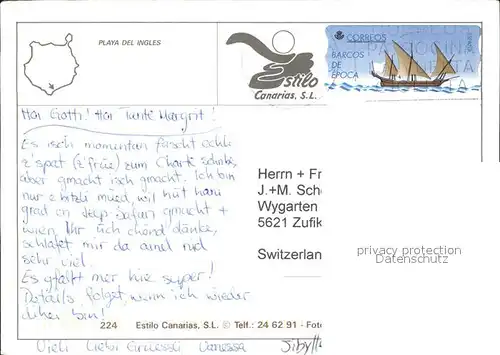 PLAYA DEL INGLES
Estilo
Canarias, S.L.
CORREOS
BARCOS
DE
EPOCA
Hoi Gotti! Hoi Tante Margrit!
Es isch momentan fascht echli
z'spat (z'früe) zum Charte schribe,
aber gmacht isch gmacht. Ich bin
nur e bitzli müed, wil hüt hani
grad en Jeep Safari gmacht +
wien Ihr eich chend dänke,
schlaft mir da amel nöd
sehr viel.
Es gfallt mer hie super!
Details folget, wenn ich wieder
diher bin!
Vieli Liebi Grüessli Vanessa
Sibylle
Herrn + Fr
J.+M. Sch
Wygarten
5621 Zufik
Switzerlan
privacy protection
Datenschutz
224 Estilo Canarias, S.L. © Telf.: 24 62 91 - Foto